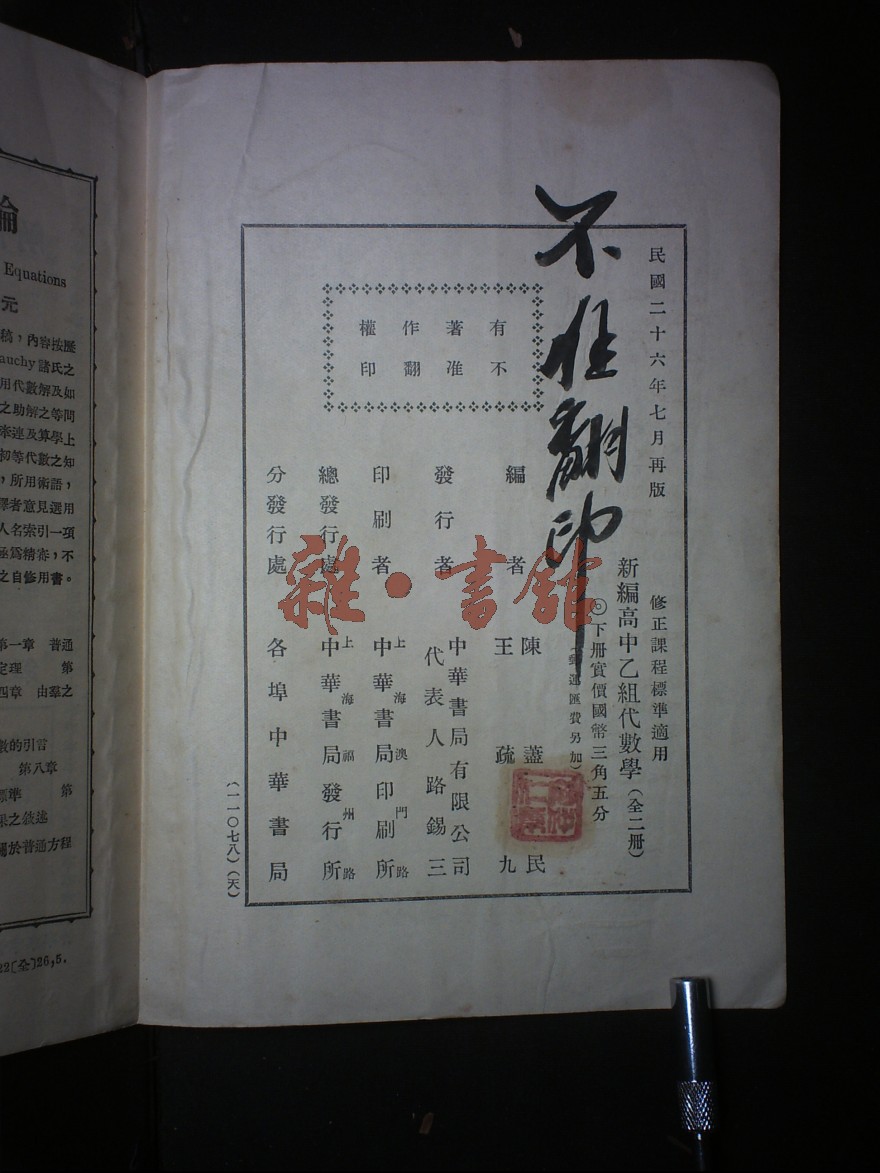 民國二十六年七月再版
修正課程標準適用
新編高中乙組代數學(全二冊)
下冊實價國幣三角五分
(郵運匯費另加)
不准翻印
有不
著准
作翻
權印
編者 陳藎民
王疏九
發行者 中華書局有限公司
代表人路錫三
印刷者 上海澳門路
中華書局印刷所
總發行處 上海福州路
中華書局發行所
分發行處 各埠中華書局
(一一〇七八)(天)
雜·書館
論
Equations
元
稿,內容按歷
auchy諸氏之
用代數解及如
之助解之等問
牽連及算學上
初等代數之知
,所用術語,
譯者意見選用
人名索引一項
極爲精審,不
之自修用書。
第一章 普通
定理 第
四章 由羣之
數的引言
第八章
標準 第
果之敘述
關於普通方程
22〔仌〕26,5.